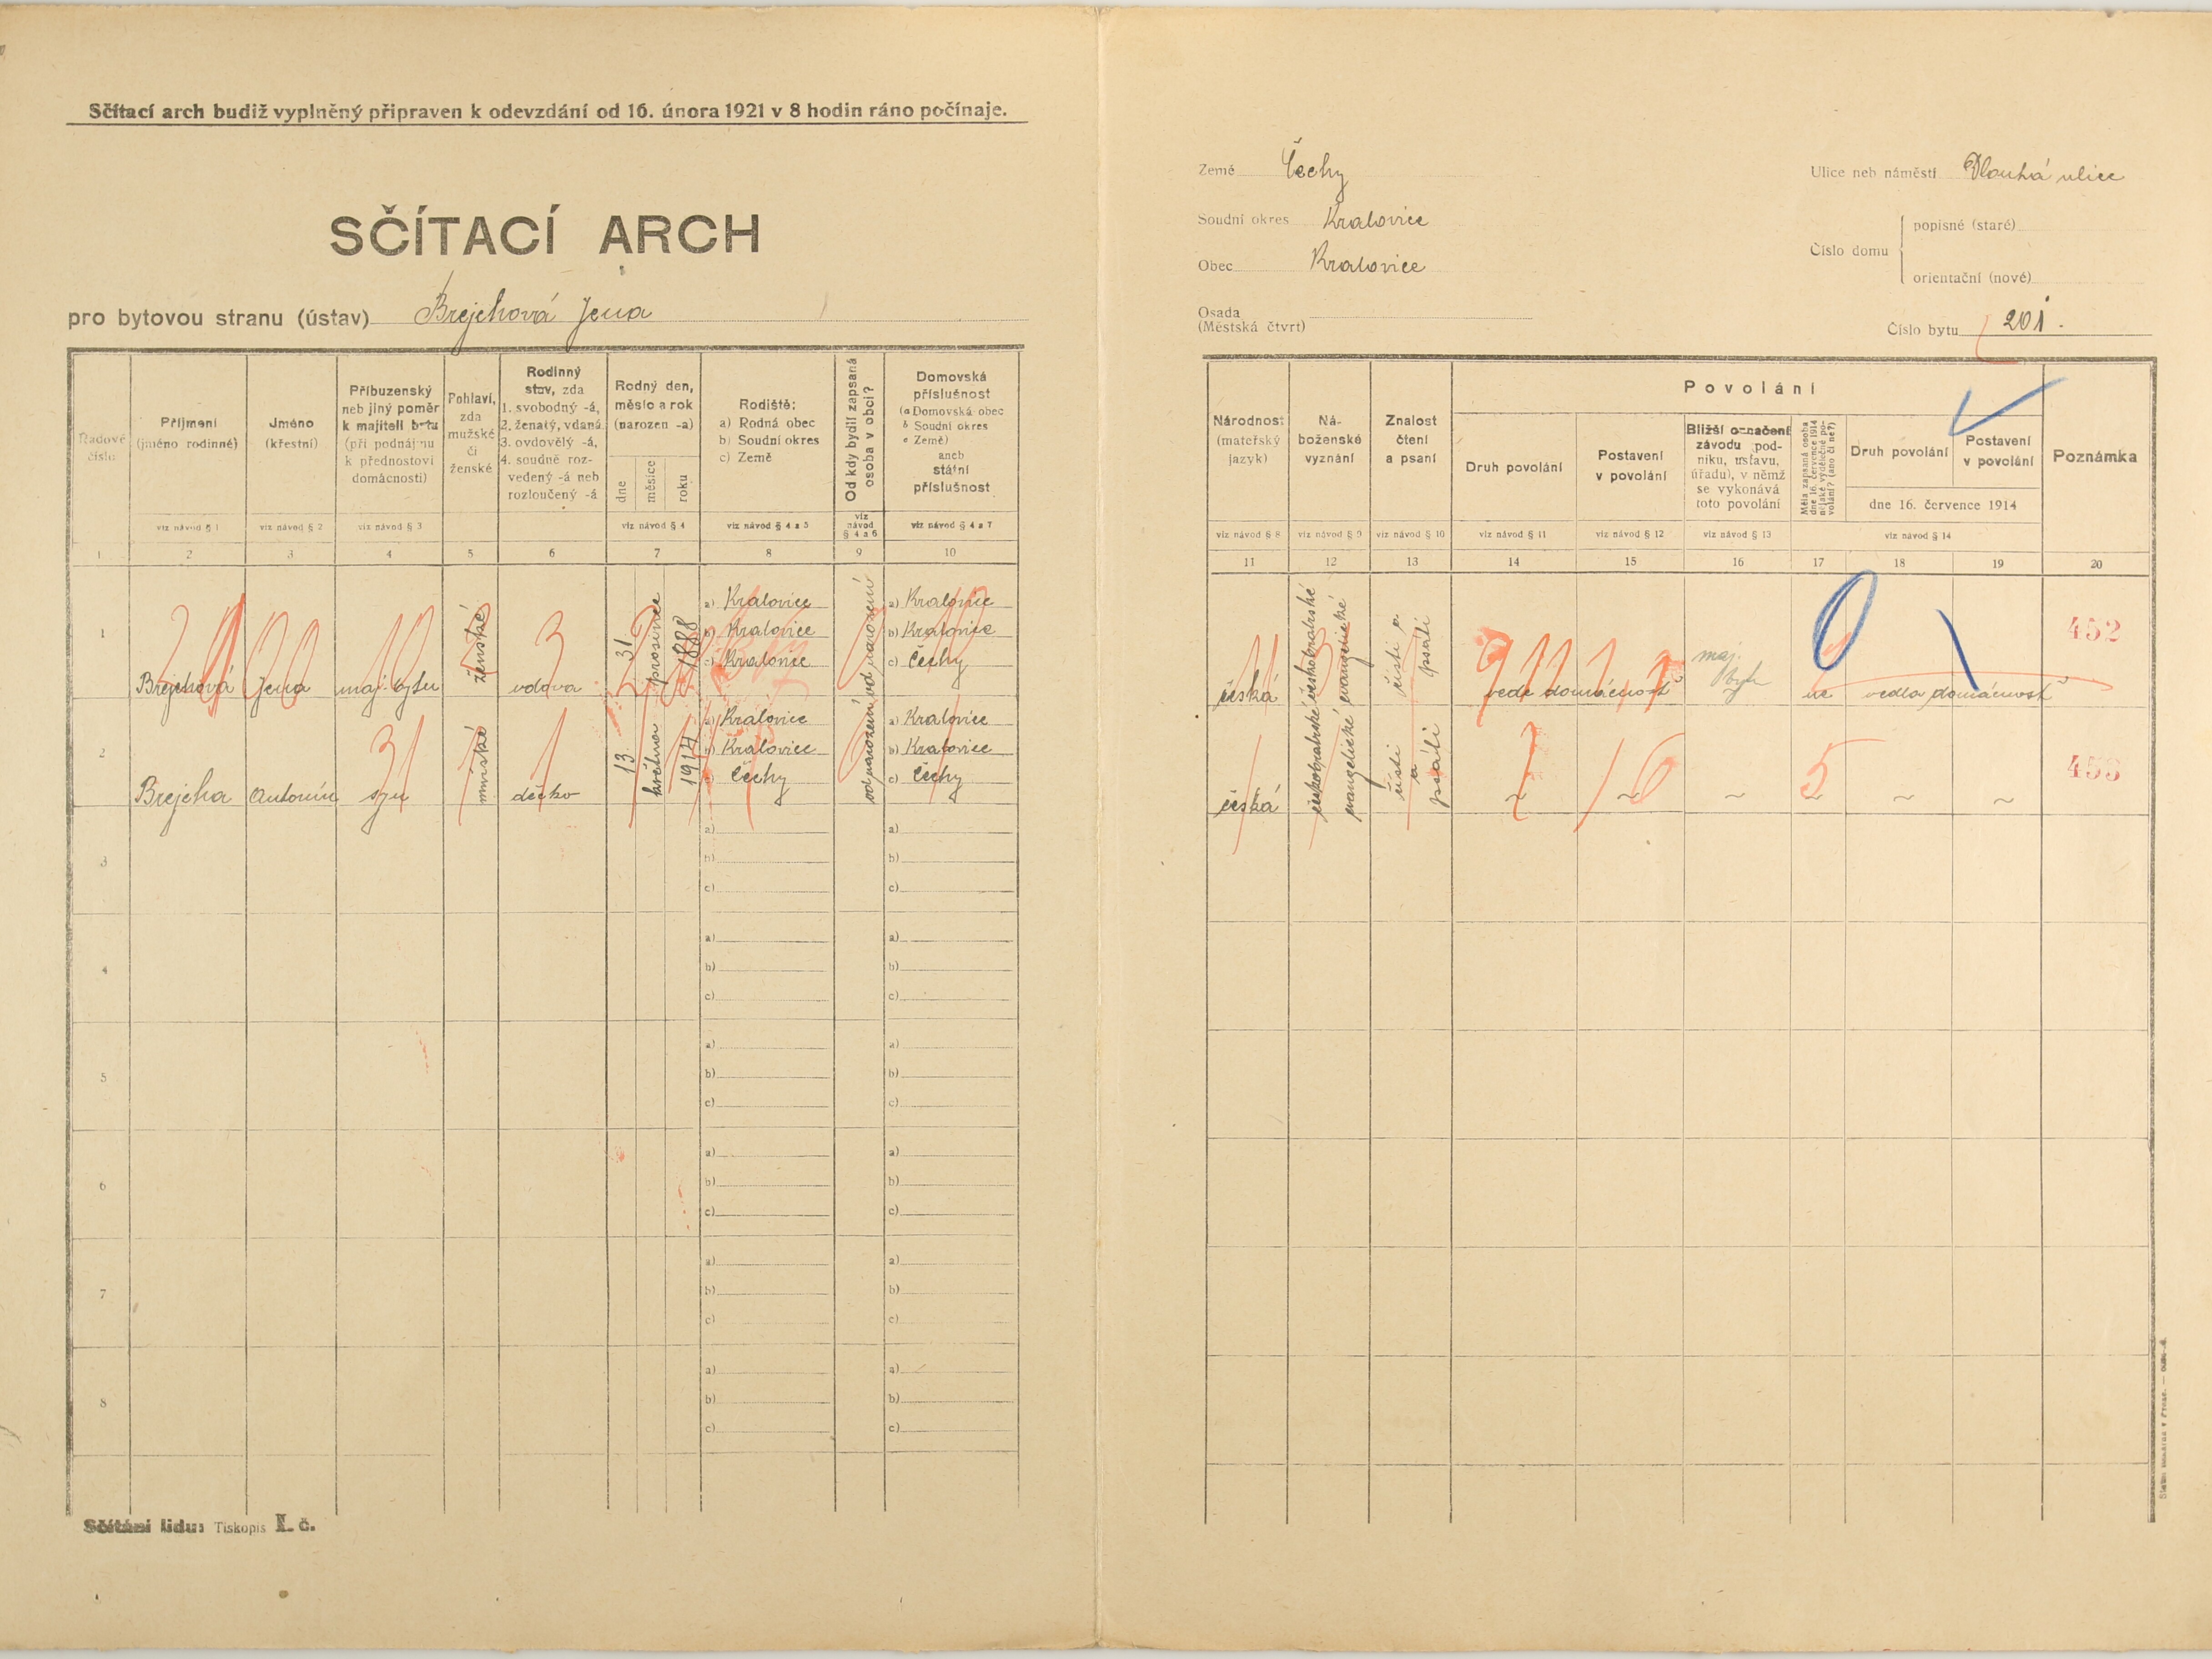 Sčítací arch budiž vyplněný připraven k odevzdání od 16. února 1921 v 8 hodin ráno počínaje.
SČÍTACÍ ARCH
pro bytovou stranu (ústav) Brejchová Jena
Země Čechy
Soudní okres Kralovice
Obec Kralovice
Osada
(Městská čtvrť)
Ulice neb náměstí Dlouhá ulice
Číslo domu
popisné (staré)
orientační (nové)
Číslo bytu 201.
Řadové
číslo
Příjmení
(jméno rodinné)
Jméno
(křestní)
Příbuzenský
neb jiný poměr
k majiteli bytu
(při podnájmu
k přednostovi
domácnosti)
Pohlaví,
zda
mužské
či
ženské
Rodinný
stav, zda
1. svobodný -á,
2. ženatý, vdaná
3. ovdovělý -á,
4. soudně roz-
vedený -á neb
rozloučený -á
Rodný den,
měsíc a rok
(narozen -a)
dne
měsíce
roku
Rodiště:
a) Rodná obec
b) Soudní okres
c) Země
Od kdy bydlí zapsaná
osoba v obci?
Domovská
příslušnost
(a Domovská obec
b Soudní okres
c Země)
aneb
státní
příslušnost
viz návod § 1
viz návod § 2
viz návod § 3
viz návod § 4
viz návod § 4 a 5
viz
návod
§ 4 a 6
viz návod § 4 a 7
1 2 3 4 5 6 7 8 9 10
Národnost
(mateřský
jazyk)
Ná-
boženské
vyznání
Znalost
čtení
a psaní
Povolání
Druh povolání
Postavení
v povolání
Bližší označení
závodu (pod-
niku, ústavu,
úřadu), v němž
se vykonává
toto povolání
Měla zapsaná osoba
dne 16. července 1914
nějaké výdělečné po-
volání? (ano či ne?)
Druh povolání
Postavení
v povolání
dne 16. července 1914
Poznámka
viz návod § 8
viz návod § 9
viz návod § 10
viz návod § 11
viz návod § 12
viz návod § 13
viz návod § 14
11 12 13 14 15 16 17 18 19 20
1
Brejchová Jena maj. bytu ženské vdova 31 prosince 1888
a) Kralovice
b) Kralovice
c) Kralovice
od narození
a) Kralovice
b) Kralovice
c) Čechy
česká
českobratrské
evangelické
čísti a
psáti
vede domácnost
maj.
bytu
ne
vedla domácnost
452
2
Brejcha Antonín syn mužské děcko 13 května 1914
a) Kralovice
b) Kralovice
c) Čechy
od narození
a) Kralovice
b) Kralovice
c) Čechy
česká
českobratrské
evangelické
čísti
a
psáti
~ ~ ~ ~ ~ ~
453
3
a) a)
b) b)
c) c)
4
a) a)
b) b)
c) c)
5
a) a)
b) b)
c) c)
6
a) a)
b) b)
c) c)
7
a) a)
b) b)
c) c)
8
a) a)
b) b)
c) c)
Sčítání lidu: Tiskopis I. č.